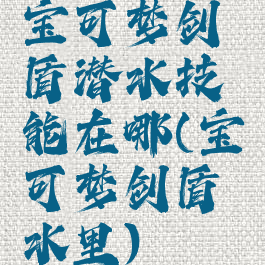 宝可梦剑
盾潜水技
能在哪(宝
可梦剑盾
水里)